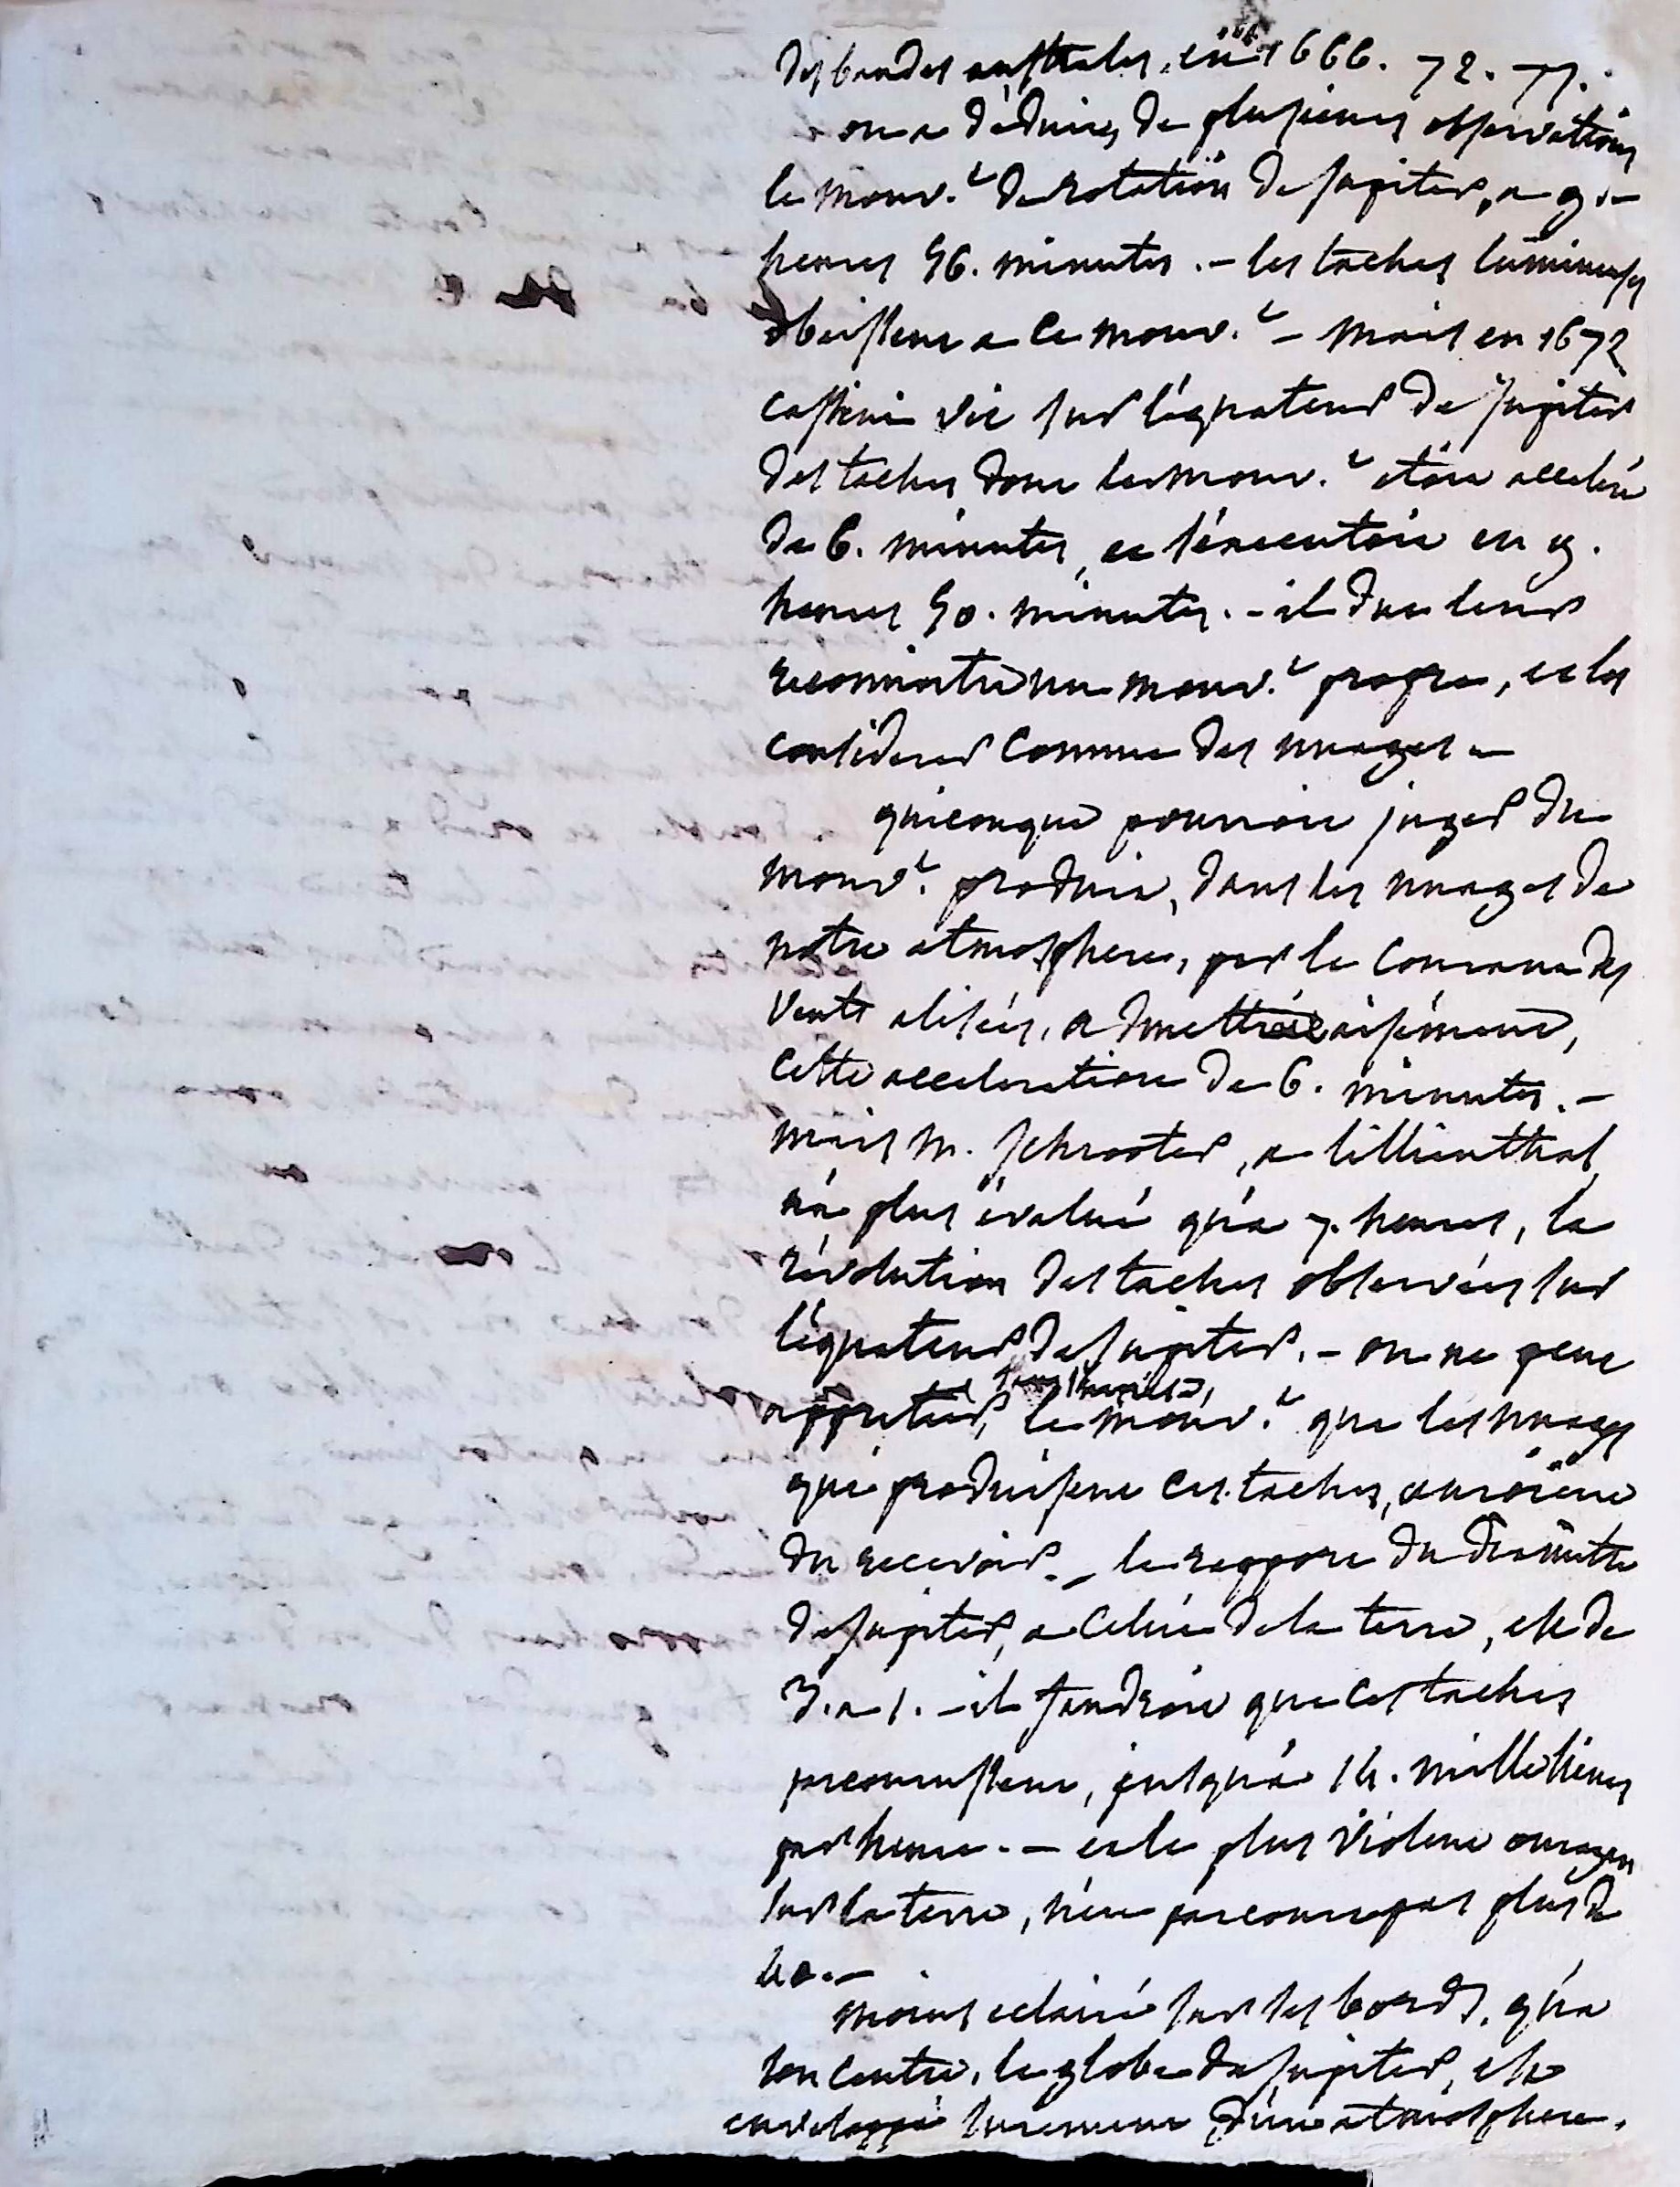 des bandes australes, en 1666. 72. 77.
on a déduit, de plusieurs observations
le mouv.t de rotation de Jupiter, a 9.
heures 56. minutes. - les taches lumineuses
obeissent a ce mouv.t - mais en 1672
cassini vit sur l'équateur de Jupiter
des taches dont le mouv.t etoit acceléré
de 6. minutes, et s'éxecutoit en 9.
heures 50. minutes. - il dut leur
reconnoitre un mouv.t propre, et les
considerer comme des nuages -
quiconque pourroit juger du
mouv.t produit, dans les nuages de
notre atmosphere, par le courant des
vents alisés, admettroit aisément,
cette acceleration de 6. minutes. -
mais M. Schrooter, a lillienthal,
n'a plus évalué qu'a 7. heures, la
révolution des taches observées sur
l'équateur de Jupiter. - on ne peut
appretier, le mouv.t que les nuages
qui produisent ces taches, auroient
du recevoir. - le rapport du diamètre
de Jupiter, a celui de la terre, est de
3. a 1. - il faudroit que ces taches
parcourussent, jusqu'a 14. mille lieues
par heure. - et le plus violent ouragan
sur la terre, n'en parcourt pas plus de
40. -
moins eclairé sur ses bords, qu'a
son centre, le globe de Jupiter, est
enveloppé surement d'une atmosphere.